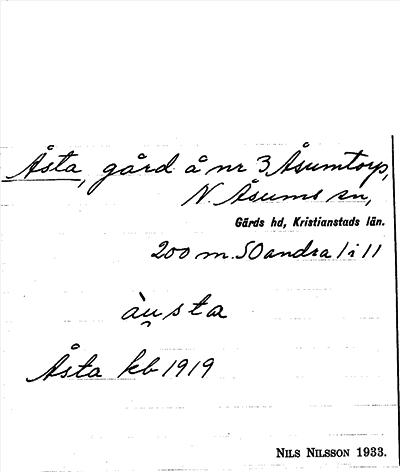 Åsta, gård å nr 3 Åsumtorp,
N. Åsums sn,
Gärds hd, Kristianstads län.
200 m. SO andra 1 i 11
àu̯sta
Åsta kb 1919
NILS NILSSON 1933.